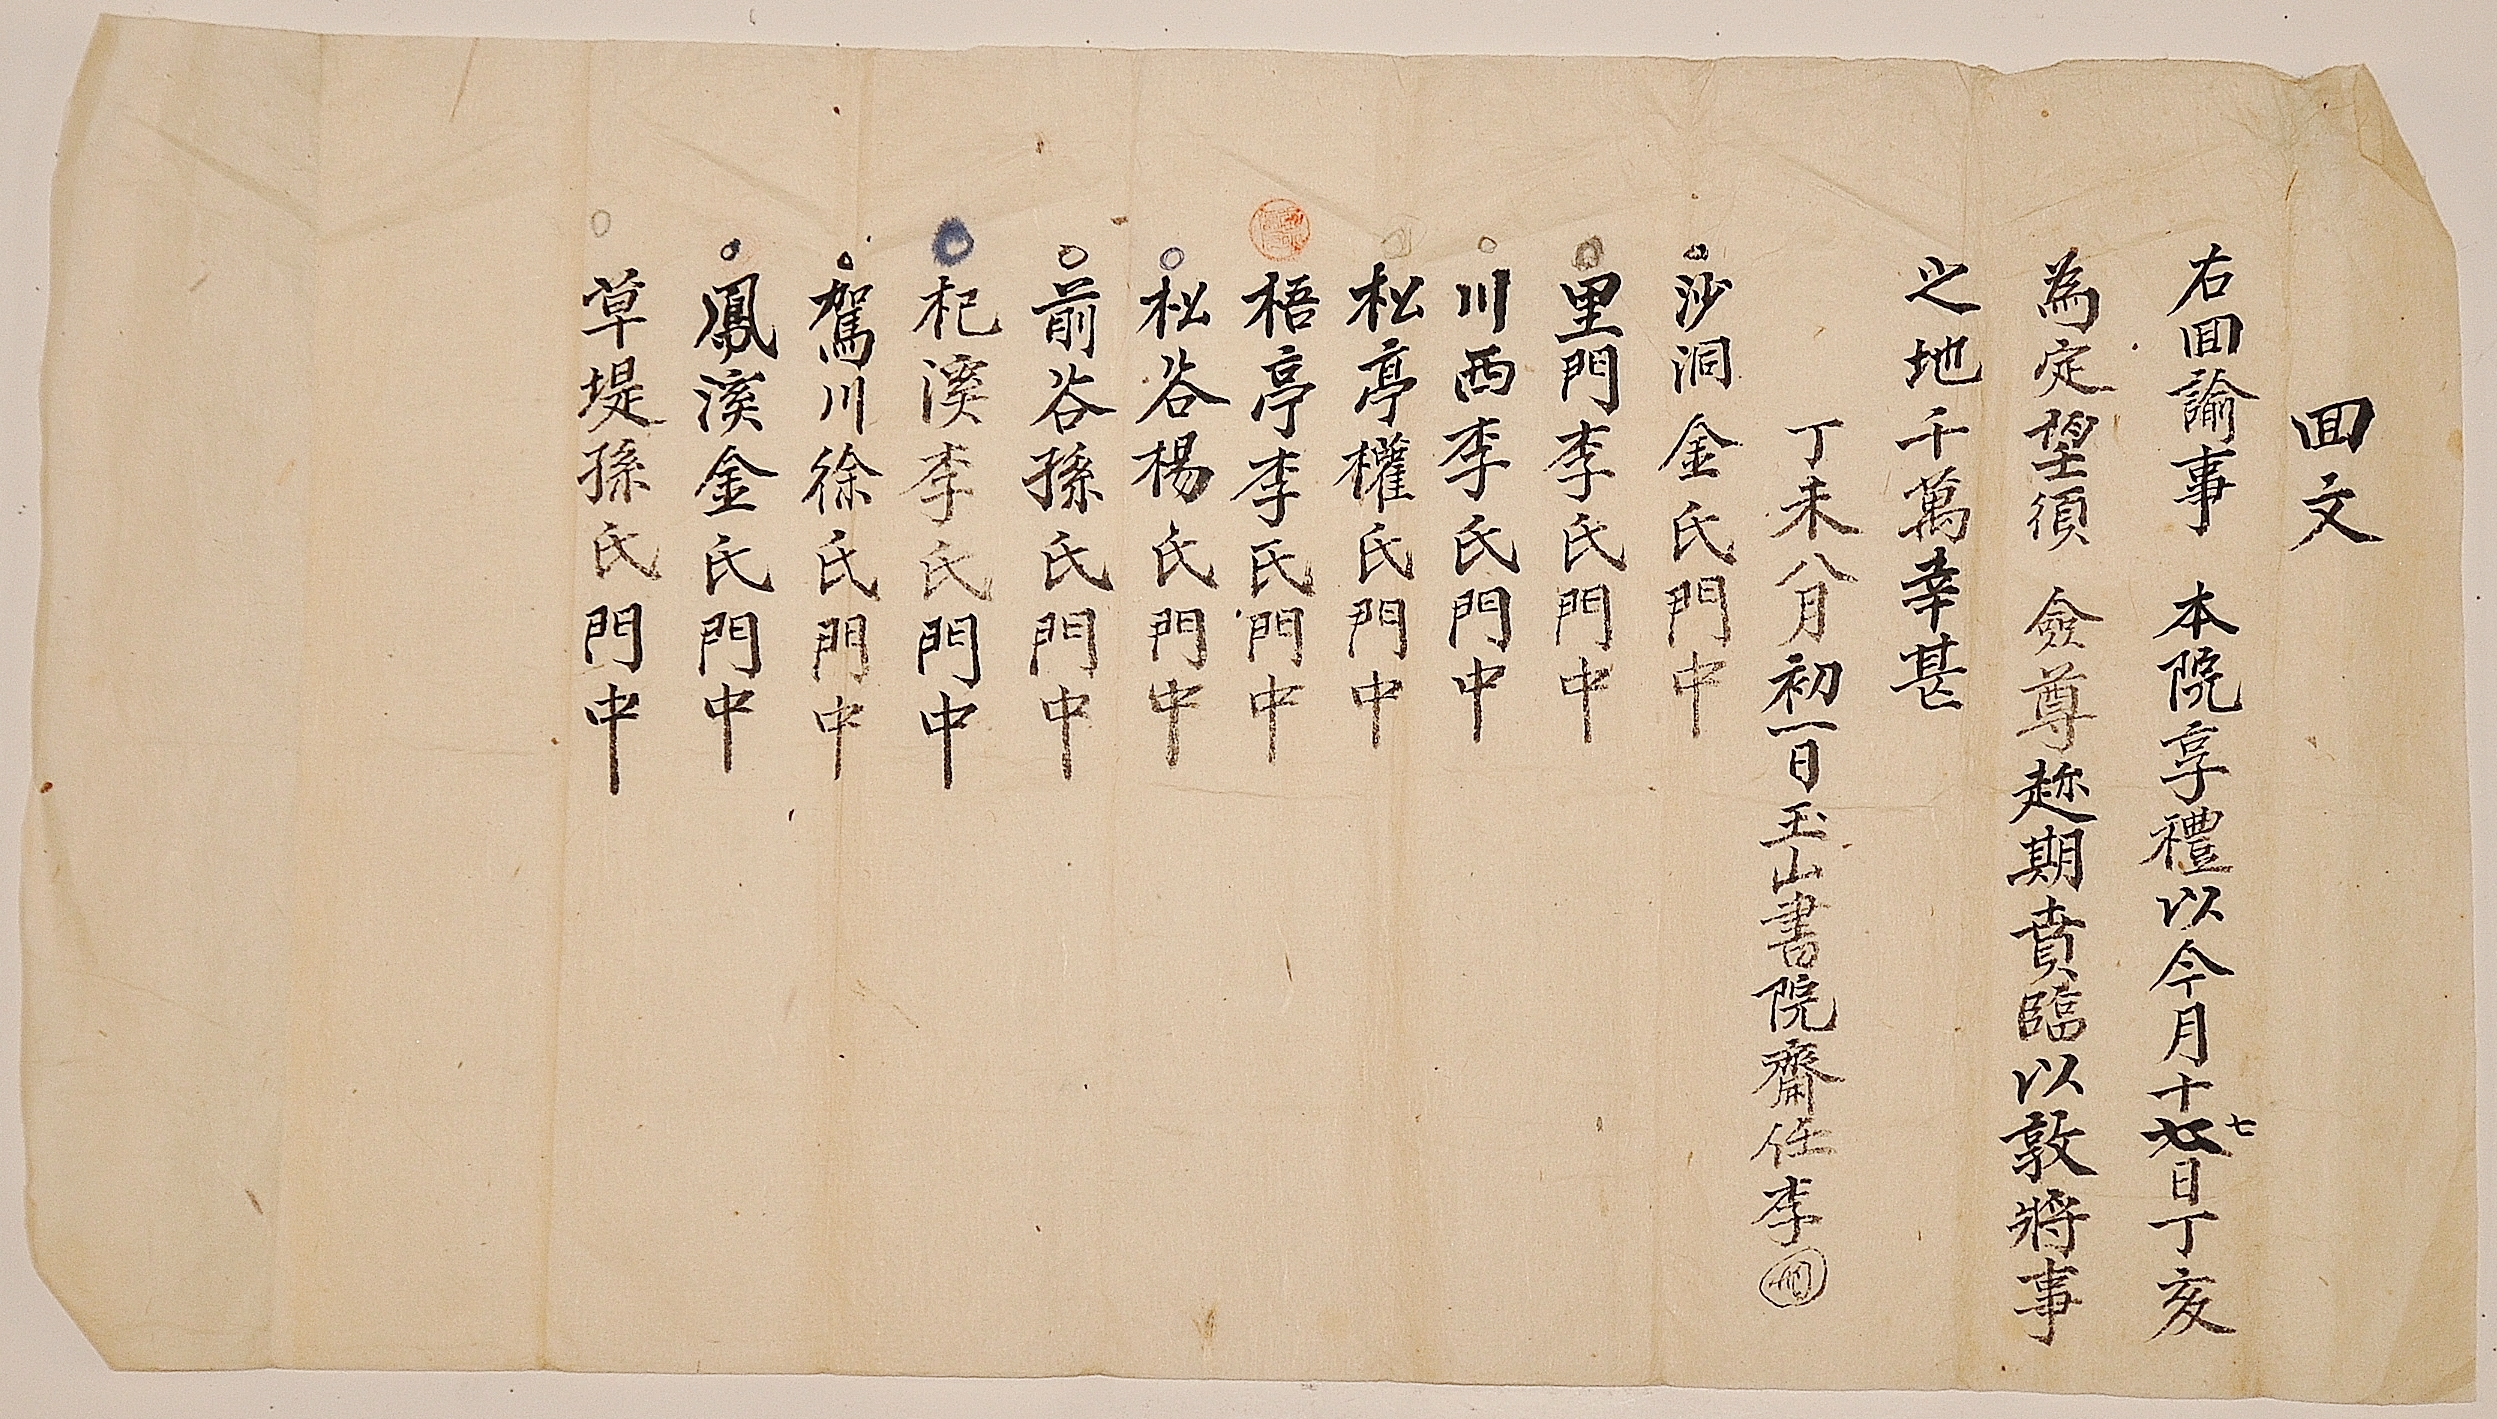 回文
右回諭事 本院享禮以今月十七日丁亥
為定望須 僉尊趂期賁臨以敦將事
之地千萬幸甚
丁未八月初一日玉山書院齋任李
沙洞金氏門中
里門李氏門中
川西李氏門中
松亭權氏門中
梧亭李氏門中
松谷楊氏門中
前谷孫氏門中
杞溪李氏門中
駕川徐氏門中
鳳溪金氏門中
草堤孫氏門中